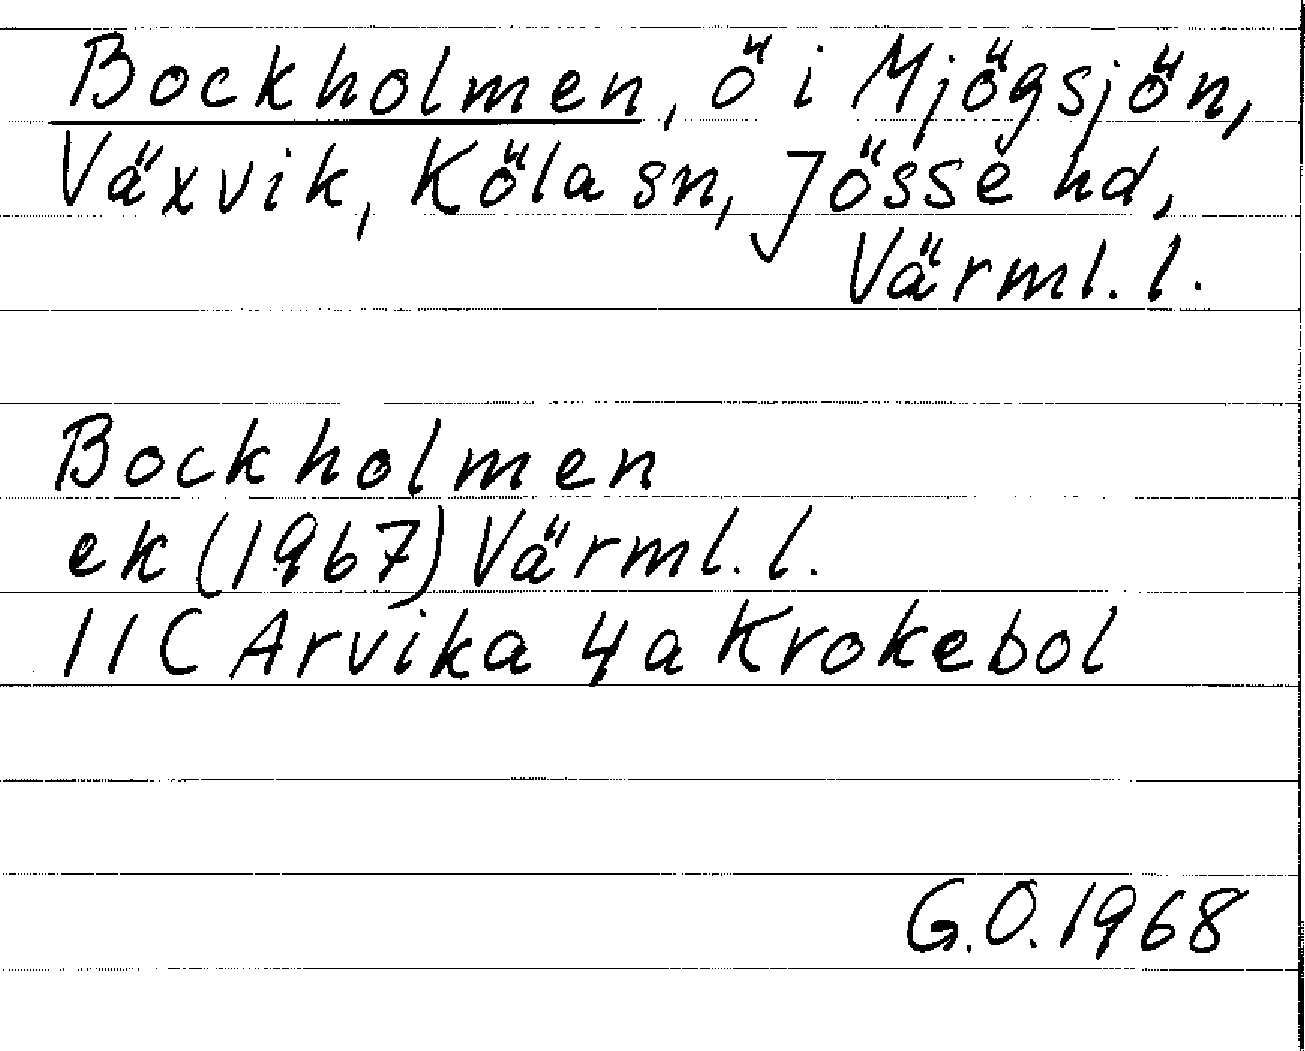 Bockholmen, ö i Mjögsjön,
Växvik, Köla sn, Jösse hd,
Värml. l.
Bockholmen
ek (1967) Värml. l.
11C Arvika 4a Krokebol
G.O. 1968